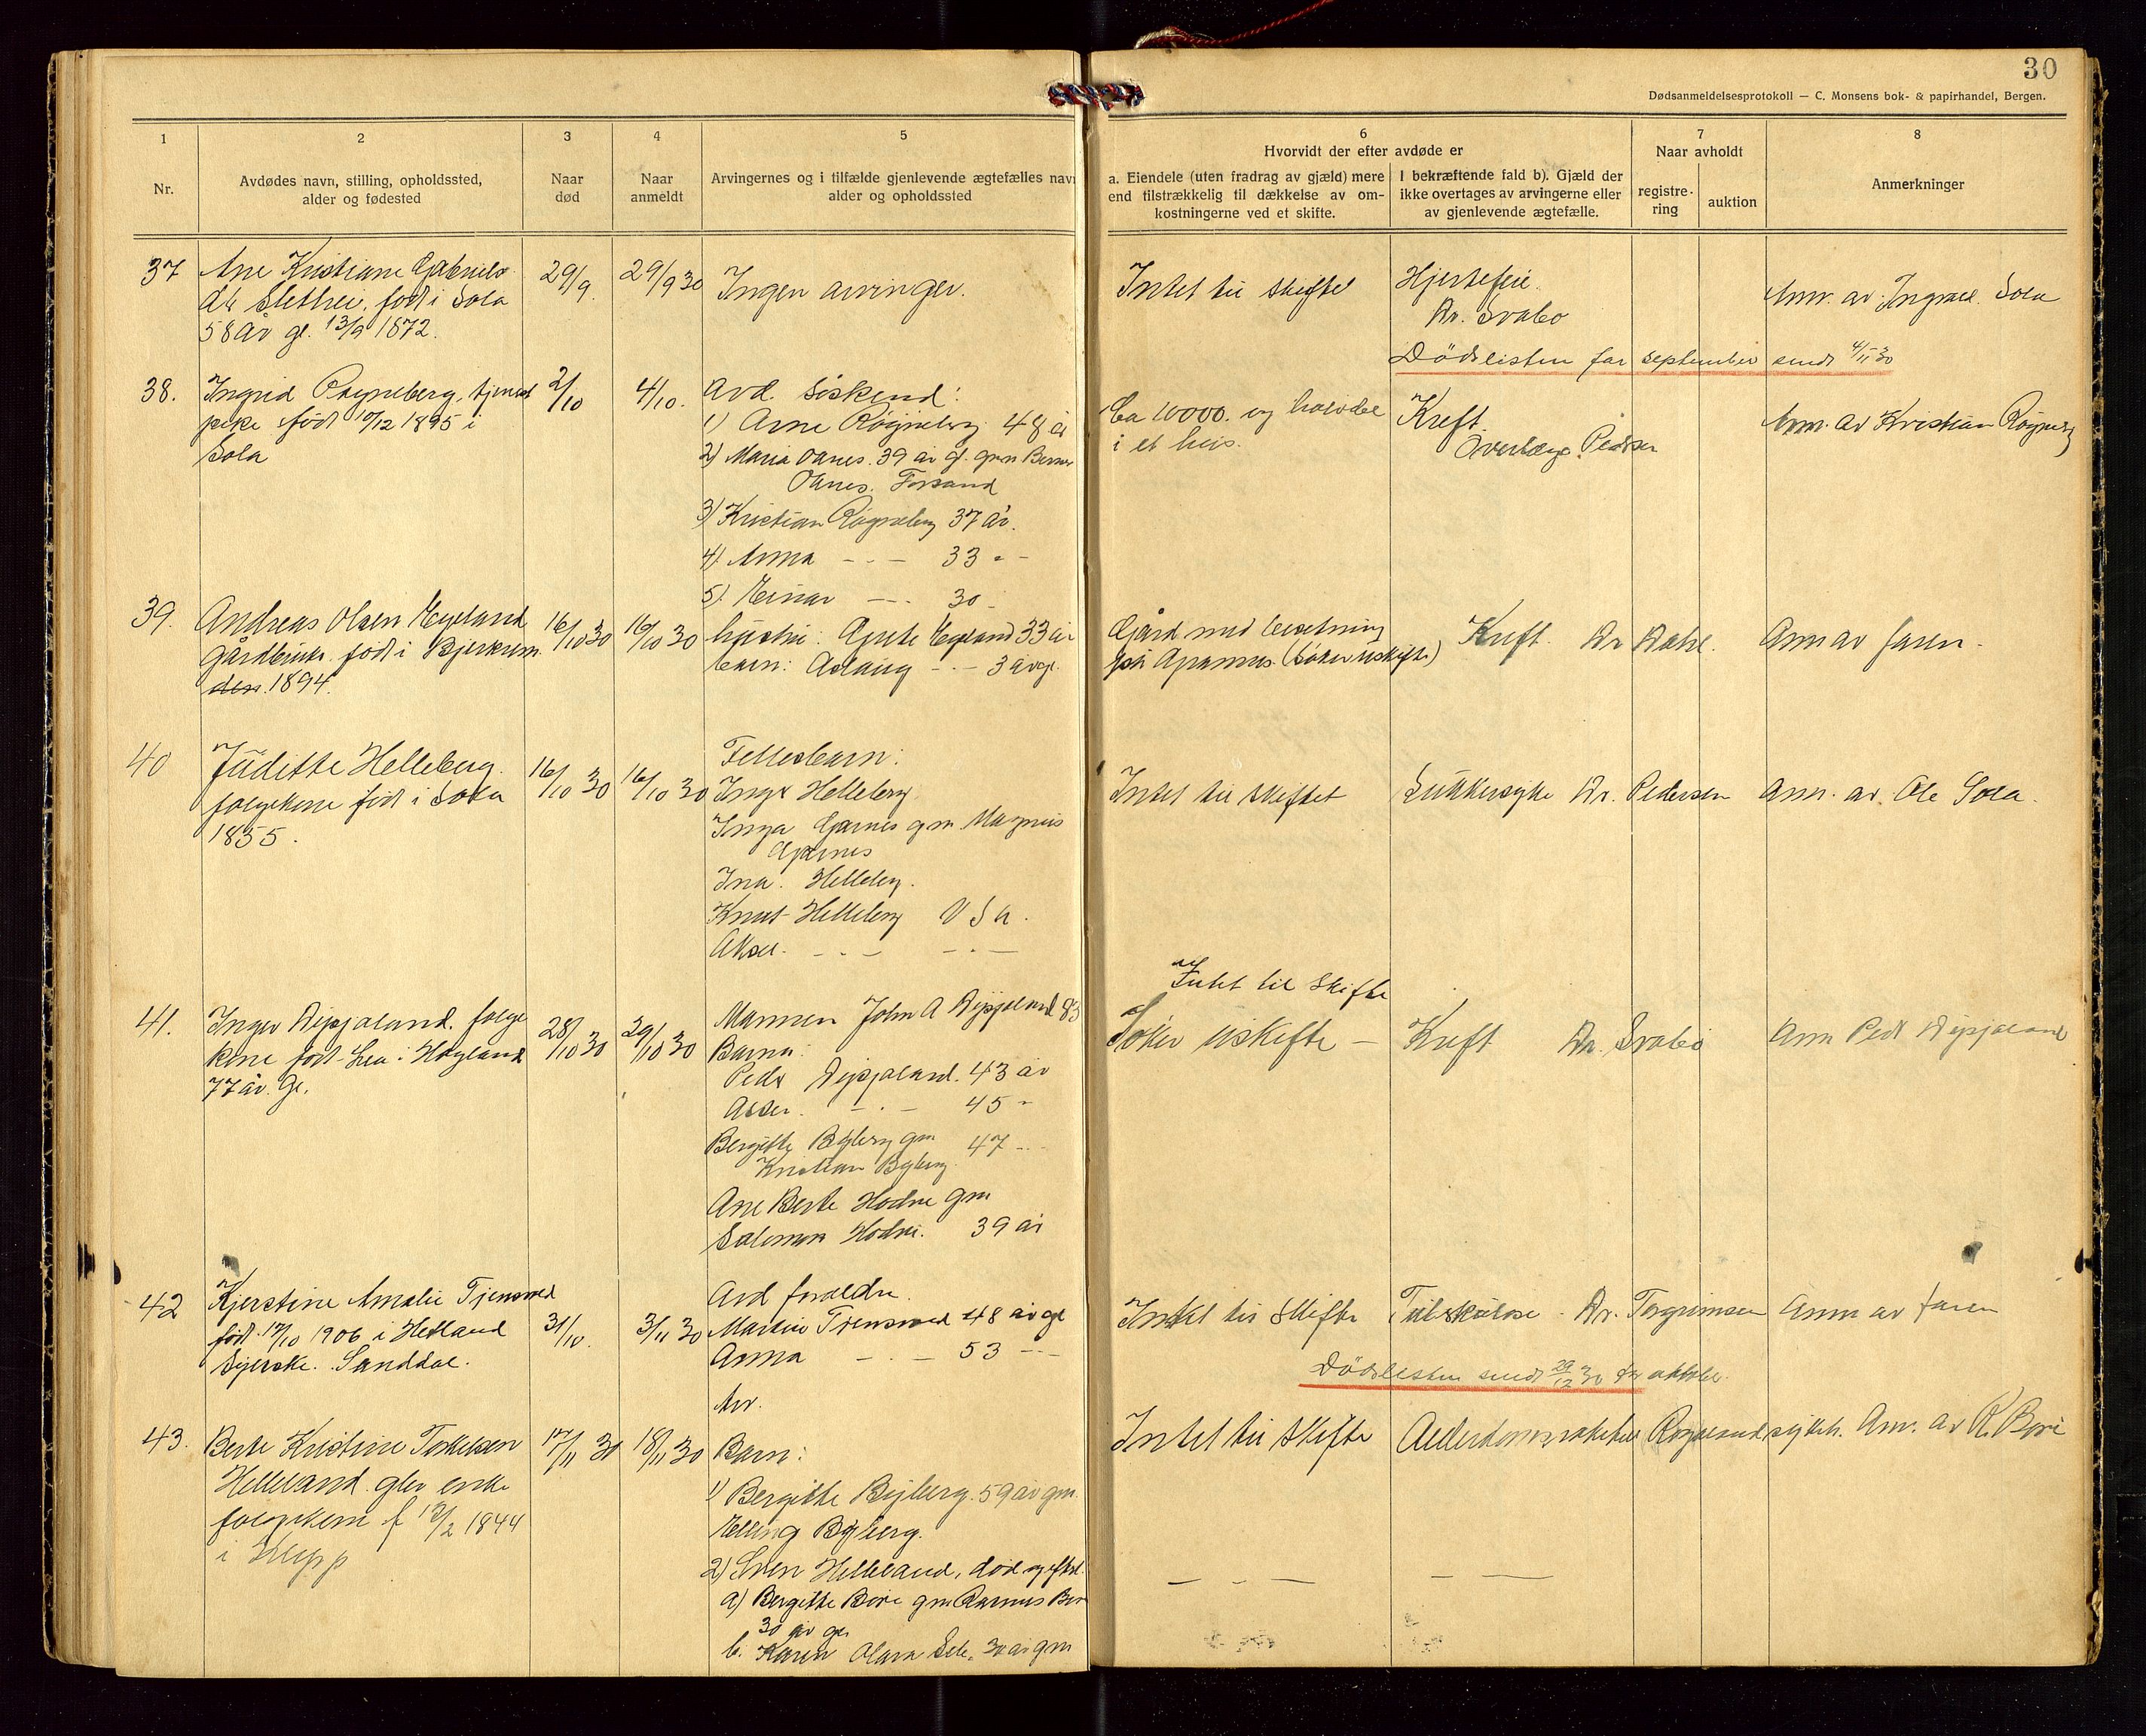 30
Dødsanmeldelsesprotokoll — C. Monsens bok- & papirhandel, Bergen.
1
2
3
4
5
6
7
8
Nr.
Avdødes navn, stilling, opholdssted,
alder og fødested
Naar
død
Naar
anmeldt
Arvingernes og i tilfælde gjenlevende ægtefælles navn
alder og opholdssted
Hvorvidt der efter avdøde er
a. Eiendele (uten fradrag av gjæld) mere
end tilstrækkelig til dækkelse av om-
kostningerne ved et skifte.
I bekræftende fald b). Gjæld der
ikke overtages av arvingerne eller
av gjenlevende ægtefælle.
Naar avholdt
registre-
ring
auktion
Anmerkninger
37
Ane Kristiane Gabriels
dtr Slethei, født i Sola
58 år gl. 13/9 1872.
29/9.
29/9 30
Ingen arvinger.
Intet til skifte
Hjertefeil
Dr. Svabo
Anm. av Sola
Dødslisten for september sendt 4/11 30
38.
Ingrid Røgneberg,
pike født 10/12 1895 i
Sola
2/10
4/10.
Avd. søskend:
1) Arne Røgneberg 48 år
2) Maria Oanes. 39 år gl. gm
Oanes. Forsand
3) Kristian Røgneberg 37 år.
4) Anna – - – 33 - –
5) Einar – - - 30 -
Ca 10000. og halvdel
i et hus.
Kreft.
Overlæge Pedersen
Anm. av Kristian Røgneberg
39.
Andreas Olsen Eyeland
Gårdbruker født i Bjerkreim
den 1894.
16/10 30
16/10 30
hustru: Eyeland 33 år
barn: Aslaug - - 3 år gl.
Gård med besetning
på Grannes. (Søker uskifte)
Kreft. Dr Dahl.
Anm av faren.
40
Juditte Helleberg.
folgekone født i Sola
1855.
16/10 30
16/10 30
Fellesbarn:
Inger Helleberg.
Inga Gjernes gm. Magnus
Gjernes
Ina. Helleberg.
Knut Helleberg USA.
Aksel. – - – – - –
Intet til skifte
Sukkersyke Dr. Pedersen
Anm. av. Ole Sola.
41.
Inger Dysjaland. folge
kone født Lea i Høyland
77 år. Gl.
28/10 30
29/10 30
Mannen John A Dysjaland 83
Barna:
Peder Dysjaland. 43 år
Asser. – - – 45 -
Bergitte Byberg gm 47 - -
Kristian Byberg.
Ane Berte Hodne gm
Salomon Hodne. 39 år
Intet til skifte
Søker uskifte –
Kreft Dr. Svabo
Anm Peder Dysjaland
42
Kjerstine Amalie Tjensvoll
født 12/10 1906 i Hetland
Syerske. Sanddal.
31/10.
3/11 30
Avd foreldre.
Martin Tjensvoll 48 år gl
Anna – - – 53 - –
Arv.
Intet til skifte
Tuberkulose - Dr. Torgrimsen
Anm av faren
Dødslisten sendt 29/12 30 for oktober.
43.
Berte Kristine Torkelsen
Helleland. glev enke
folgekone f 12/2 1844
i Klepp
17/11 30
18/11 30
Barn:
1) Bergitte Byberg. 59 år gm.
Elling Byberg.
2) Sven Helleland, død og eftrl.
a) Bergitte Bore gm Rasmus Bore
30 år gl.
b. Karen Olava Sele. 30 år gm
Intet til skifte
Alderdomssvakhet Rogaland sykeh.
Anm. av R. Bore
— - —
— - —